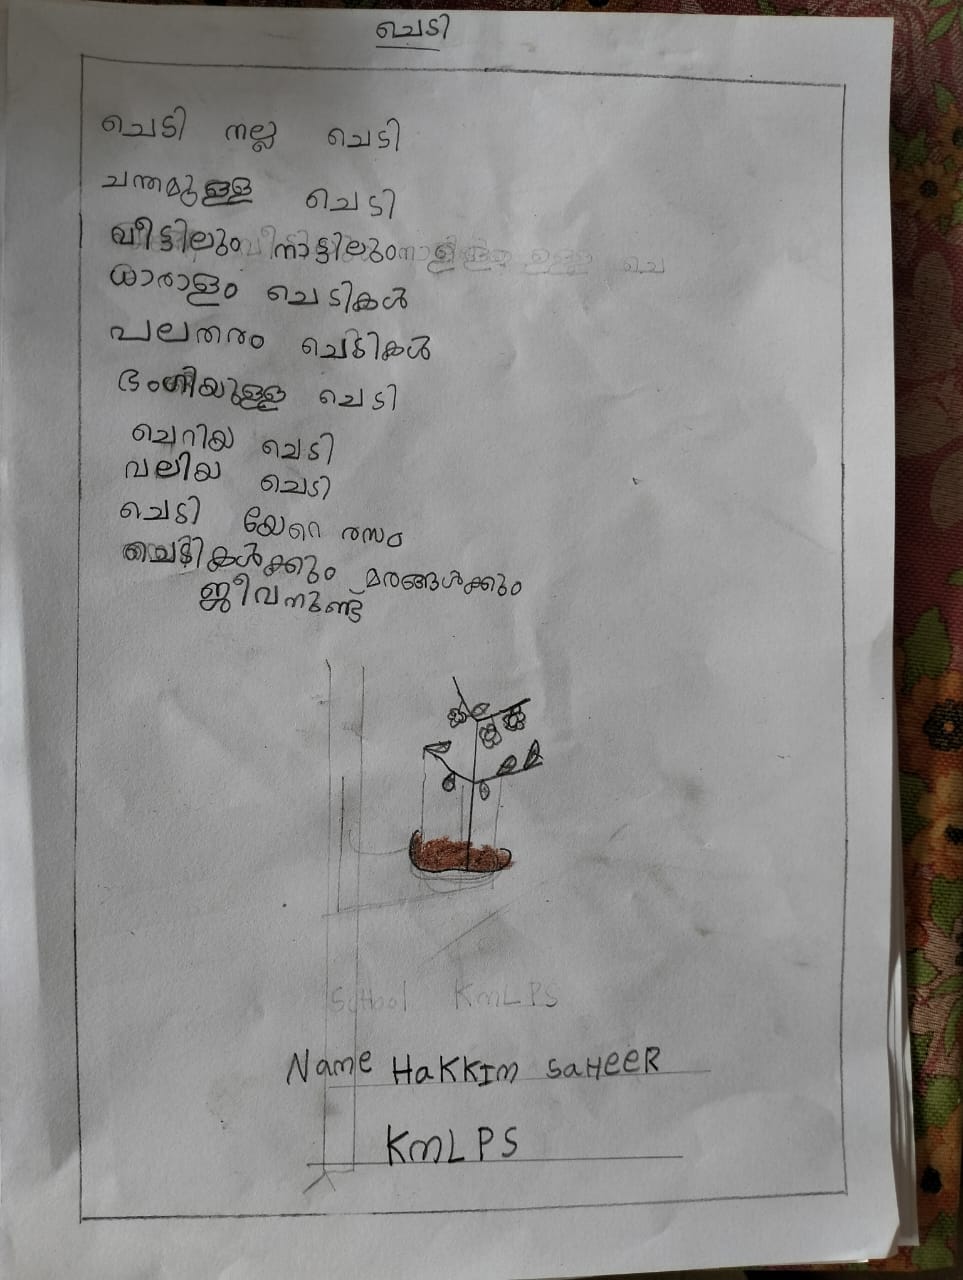 ചെടി
ചെടി നല്ല ചെടി
ചന്തമുള്ള ചെടി
വീട്ടിലും നാട്ടിലും
ധാരാളം ചെടികൾ
പലതരം ചെടികൾ
ഭംഗിയുള്ള ചെടി
ചെറിയ ചെടി
വലിയ ചെടി
ചെടി യേറെ രസം
ചെടികൾക്കും മരങ്ങൾക്കും
ജീവനുണ്ട്
School KMLPS
Name HaKKIM SaHeeR
KMLPS